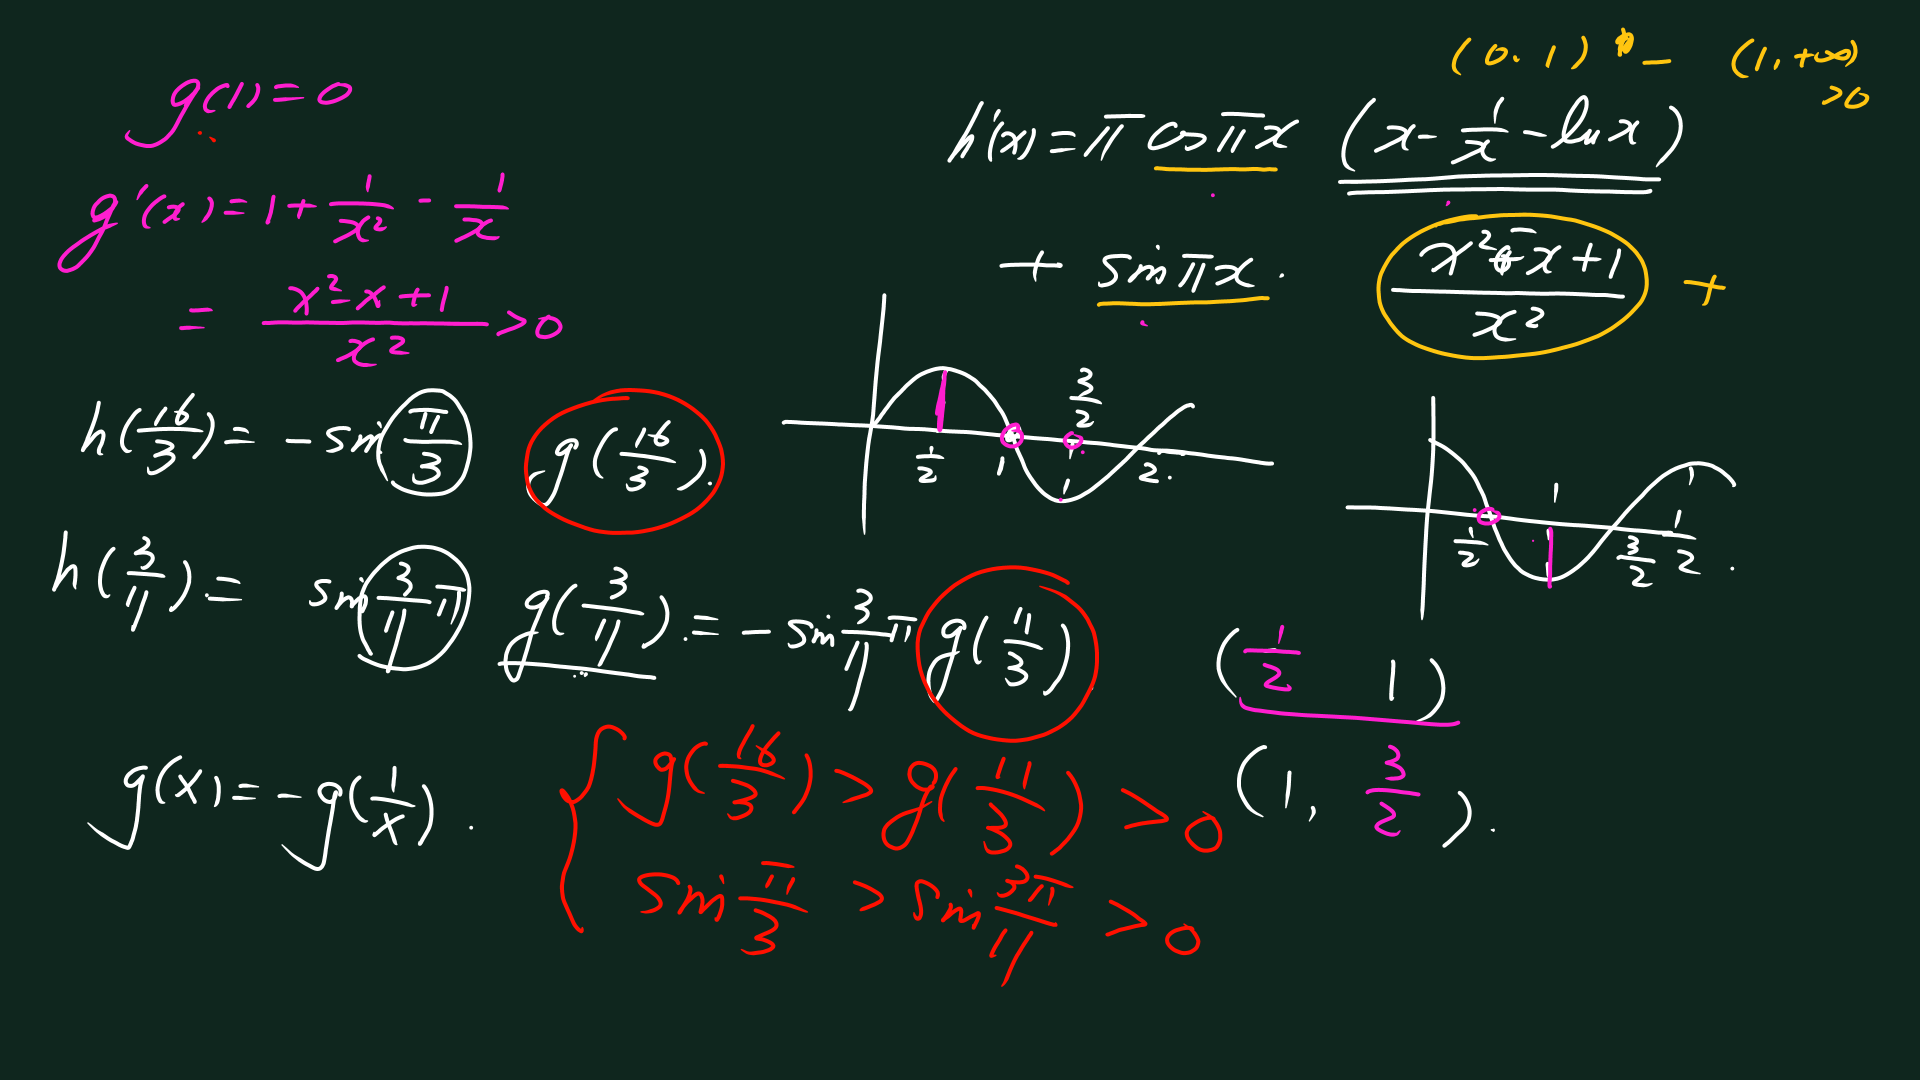 g(1)=0
g'(x)=1+\frac{1}{x^2}-\frac{1}{x}
=\frac{x^2-x+1}{x^2}>0
(0.1) - (1,+∞)
>0
h'(x)=π cosπx (x-\frac{1}{x}-ln x)
+ sinπx. \frac{x^2-x+1}{x^2} +
\frac{1}{2} 1 \frac{3}{2} 2.
\frac{1}{2} 1 \frac{3}{2} \frac{1}{2}.
h(\frac{16}{3})= -sin\frac{π}{3} g(\frac{16}{3}).
h(\frac{3}{11}).= sin\frac{3}{11}π g(\frac{3}{11}).= -sin\frac{3}{11}π g(\frac{11}{3})
g(x)=-g(\frac{1}{x}).
{ g(\frac{16}{3})>g(\frac{11}{3})>0
sin\frac{π}{3}>sin\frac{3π}{11}>0
(\frac{1}{2} 1)
(1,\frac{3}{2}).